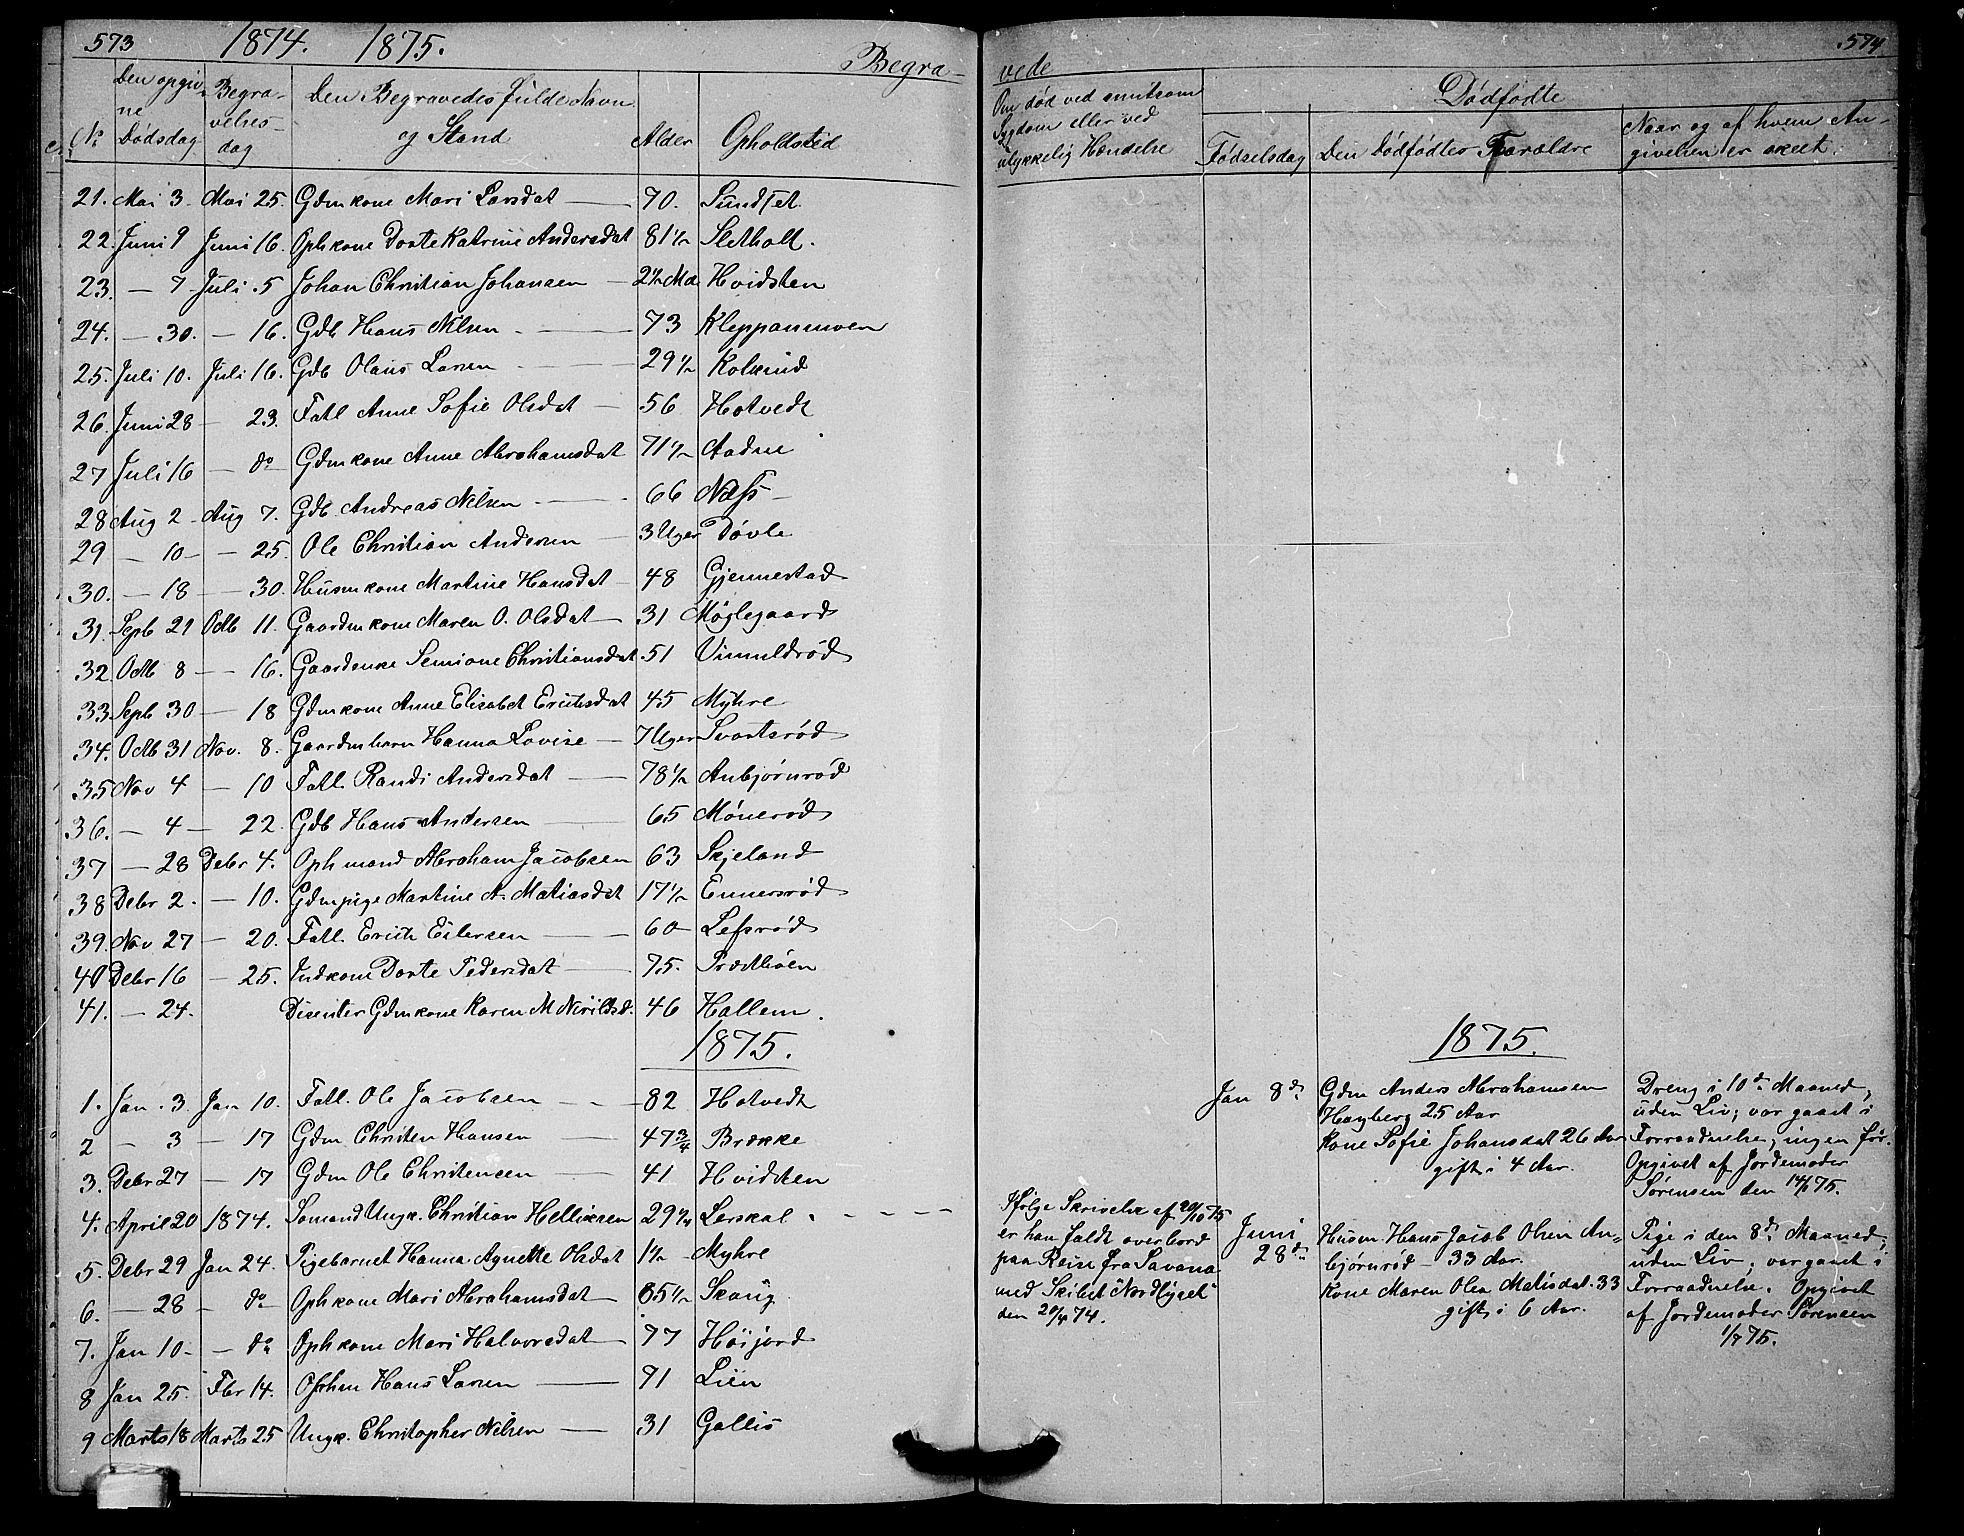 573 1874. 1875. Begra-
Den opgiv- Begra- Den Begravedes fulde Navn
ne velses-
No Dødsdag dag og Stand Alder Opholdsted
21. Mai 3 Mai 25. Gdmkone Mari Larsdat 70. Sundset
22. Juni 9 Juni 16. Ophkone Dorte Katrine Andersdat 81 1/2 Sletholt.
23. — 7 Juli 5 Johan Christian Johansen 2 1/2 Md Hvidsten
24. — 30. — 16. Gdb Hans Nilsen 73 Kleppanmoen
25. Juli 10. Juli 16. Gdb Olaus Larsen 29 1/2 Kolkind
26. Juni 28 — 23. Fatl Anne Sofie Olsdat 56 Hotvedt
27 Juli 16 — do Gdmkone Anne Abrahamsdat 71 1/2 Aadne
28 Aug 2 Aug 7. Gdb Andreas Nilsen 66 Næss
29 — 10 — 25. Ole Christian Andersen 3 Uger Døvle
30. — 18 — 30. Husmkone Martine Hansdat 48 Gjennestad
31. Septb 21 Octb 11. Gaardmkone Maren O. Olsdat 31 Møglegaard
32. Octb 8 — 16. Gaardenke Semione Christiansdat 51 Vimmeldrød
33 Septb 30 — 18 Gdmkone Anne Elisabet Erichsdat 45 Myhre
34. Octb 31 Nov. 8. Gaardmbarn Hanna Lovise 7 Uger Svartsrød
35 Nov 4 — 10 Fatl. Randi Andersdat 78 1/2 Anbjørnrød
36. — 4 — 22. Gdb Hans Andersen 65 Mønerød
37 — 28 Debr 4. Ophmand Abraham Jacobsen 63 Skjeland
38 Debr 2. — 10. Gdmpige Martine A. Matiasdat 17 1/2 Ennersrød
39. Nov 27 — 20. Fatl. Erich Eilersen 60 Lefsrød
40 Debr 16 — 25. Indkone Dorte Pedersdat 75.
41. — 24. Disenter Gdmkone Karen M 46 Hallem.
1875.
1. Jan. 3 Jan 10. Fatl. Ole Jacobsen 82 Hotvedt
2 — 3 — 17 Gdm Christen Hansen 47 3/4 Brække
3. Debr 27 — 17 Gdm Ole Christensen 41 Hvidsten
4. April 20 1874. Sømand Ungk. Christian Helliksen 29 1/4 Lerskal
5. Debr 29 Jan 24. Pigebarnet Hanna Agnette Olsdat 1 1/2 Myhre
6. — 28 — do Ophkone Mari Abrahamsdat 65 1/2 Skoug
7. Jan 10 — do Ophkone Mari Halvorsdat 77 Høijord
8 Jan 25. Fbr 14. Ophm Hans Larsen 71 Lien
9 Marts 18 Marts 25 Ungk. Christopher Nilsen 31 Gallis
vede 574
Om død ved smitsom Dødfødte
Sygdom eller ved
ulykkelig Hændelse Fødselsdag Den Dødfødtes Forældre Naar og af hvem An-
givelsen er skeet.
1875.
Jan 8de Gdm Anders Abrahamsen
Høyberg 25 Aar
Kone Sofie Johansdat 26 Aar
gift i 4 Aar.
Dreng i 10de Maaned,
uden Liv; var gaaet i
Forraadnelse; ingen før.
Opgivet af Jordemoder
Sørensen den 14/1 75.
Ifølge Skrivelse af 20/10 75
er han faldt overbord
paa Reise fra Savana
med Skibet "Nordlyset"
den 20/4 74.
Juni
28de
Husm Hans Jacob Olsen An-
bjørnrød 33 Aar.
Kone Maren Olea Matisdat. 33
gift i 6 Aar.
Pige i den 8de Maaned,
uden Liv; var gaaet i
Forraadnelse. Opgivet
af Jordemoder Sørensen
1/7 75.